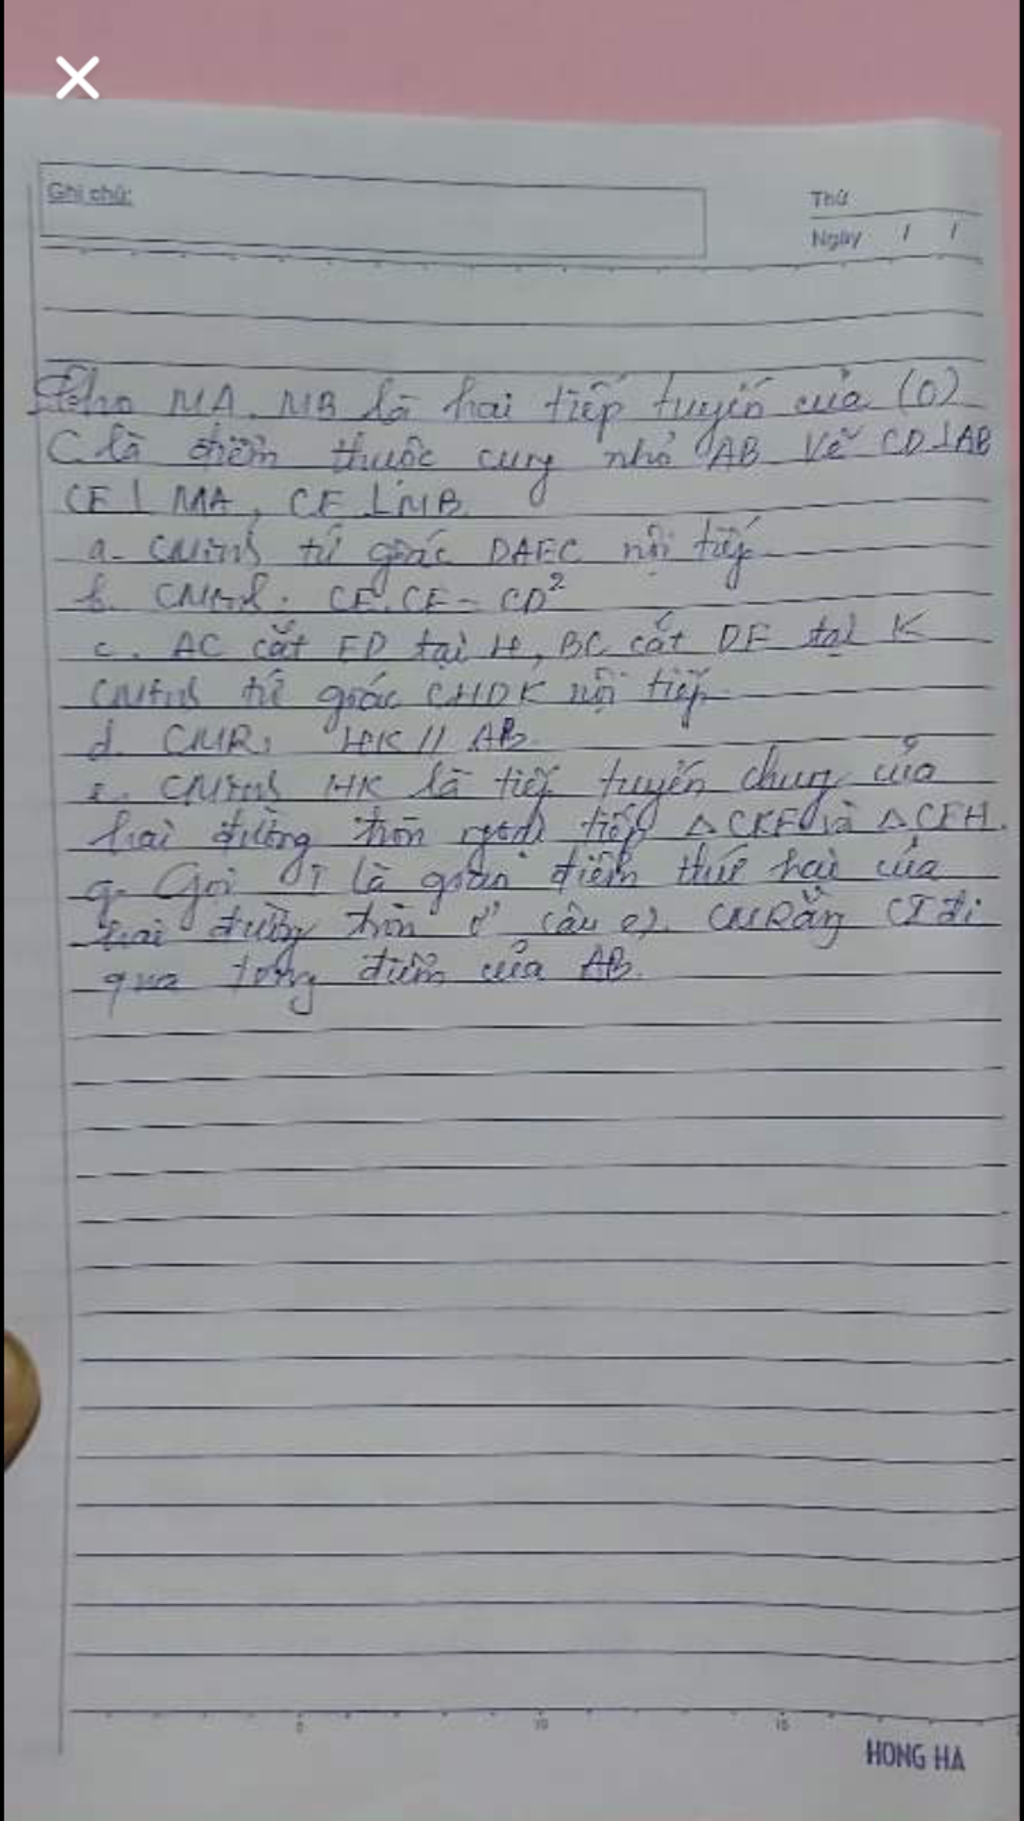 Ghi chú:
Thứ
Ngày / /
Cho MA, MB là hai tiếp tuyến của (O)
C là điểm thuộc cung nhỏ AB Vẽ CD⊥AB
CE⊥MA, CF⊥MB
a- CMinh tứ giác DAEC nội tiếp
b. CMinh: CE.CF = CD²
c. AC cắt ED tại H, BC cắt DF tại K
CMinh tứ giác CHDK nội tiếp
d. CMR: HK // AB
e. CMinh HK là tiếp tuyến chung của
hai đường tròn ngoại tiếp △CKF và △CEH.
g- Gọi I là giao điểm thứ hai của
hai đường tròn ở câu e). CMRằng CI đi
qua trung điểm của AB.
5 10 15
HONG HA